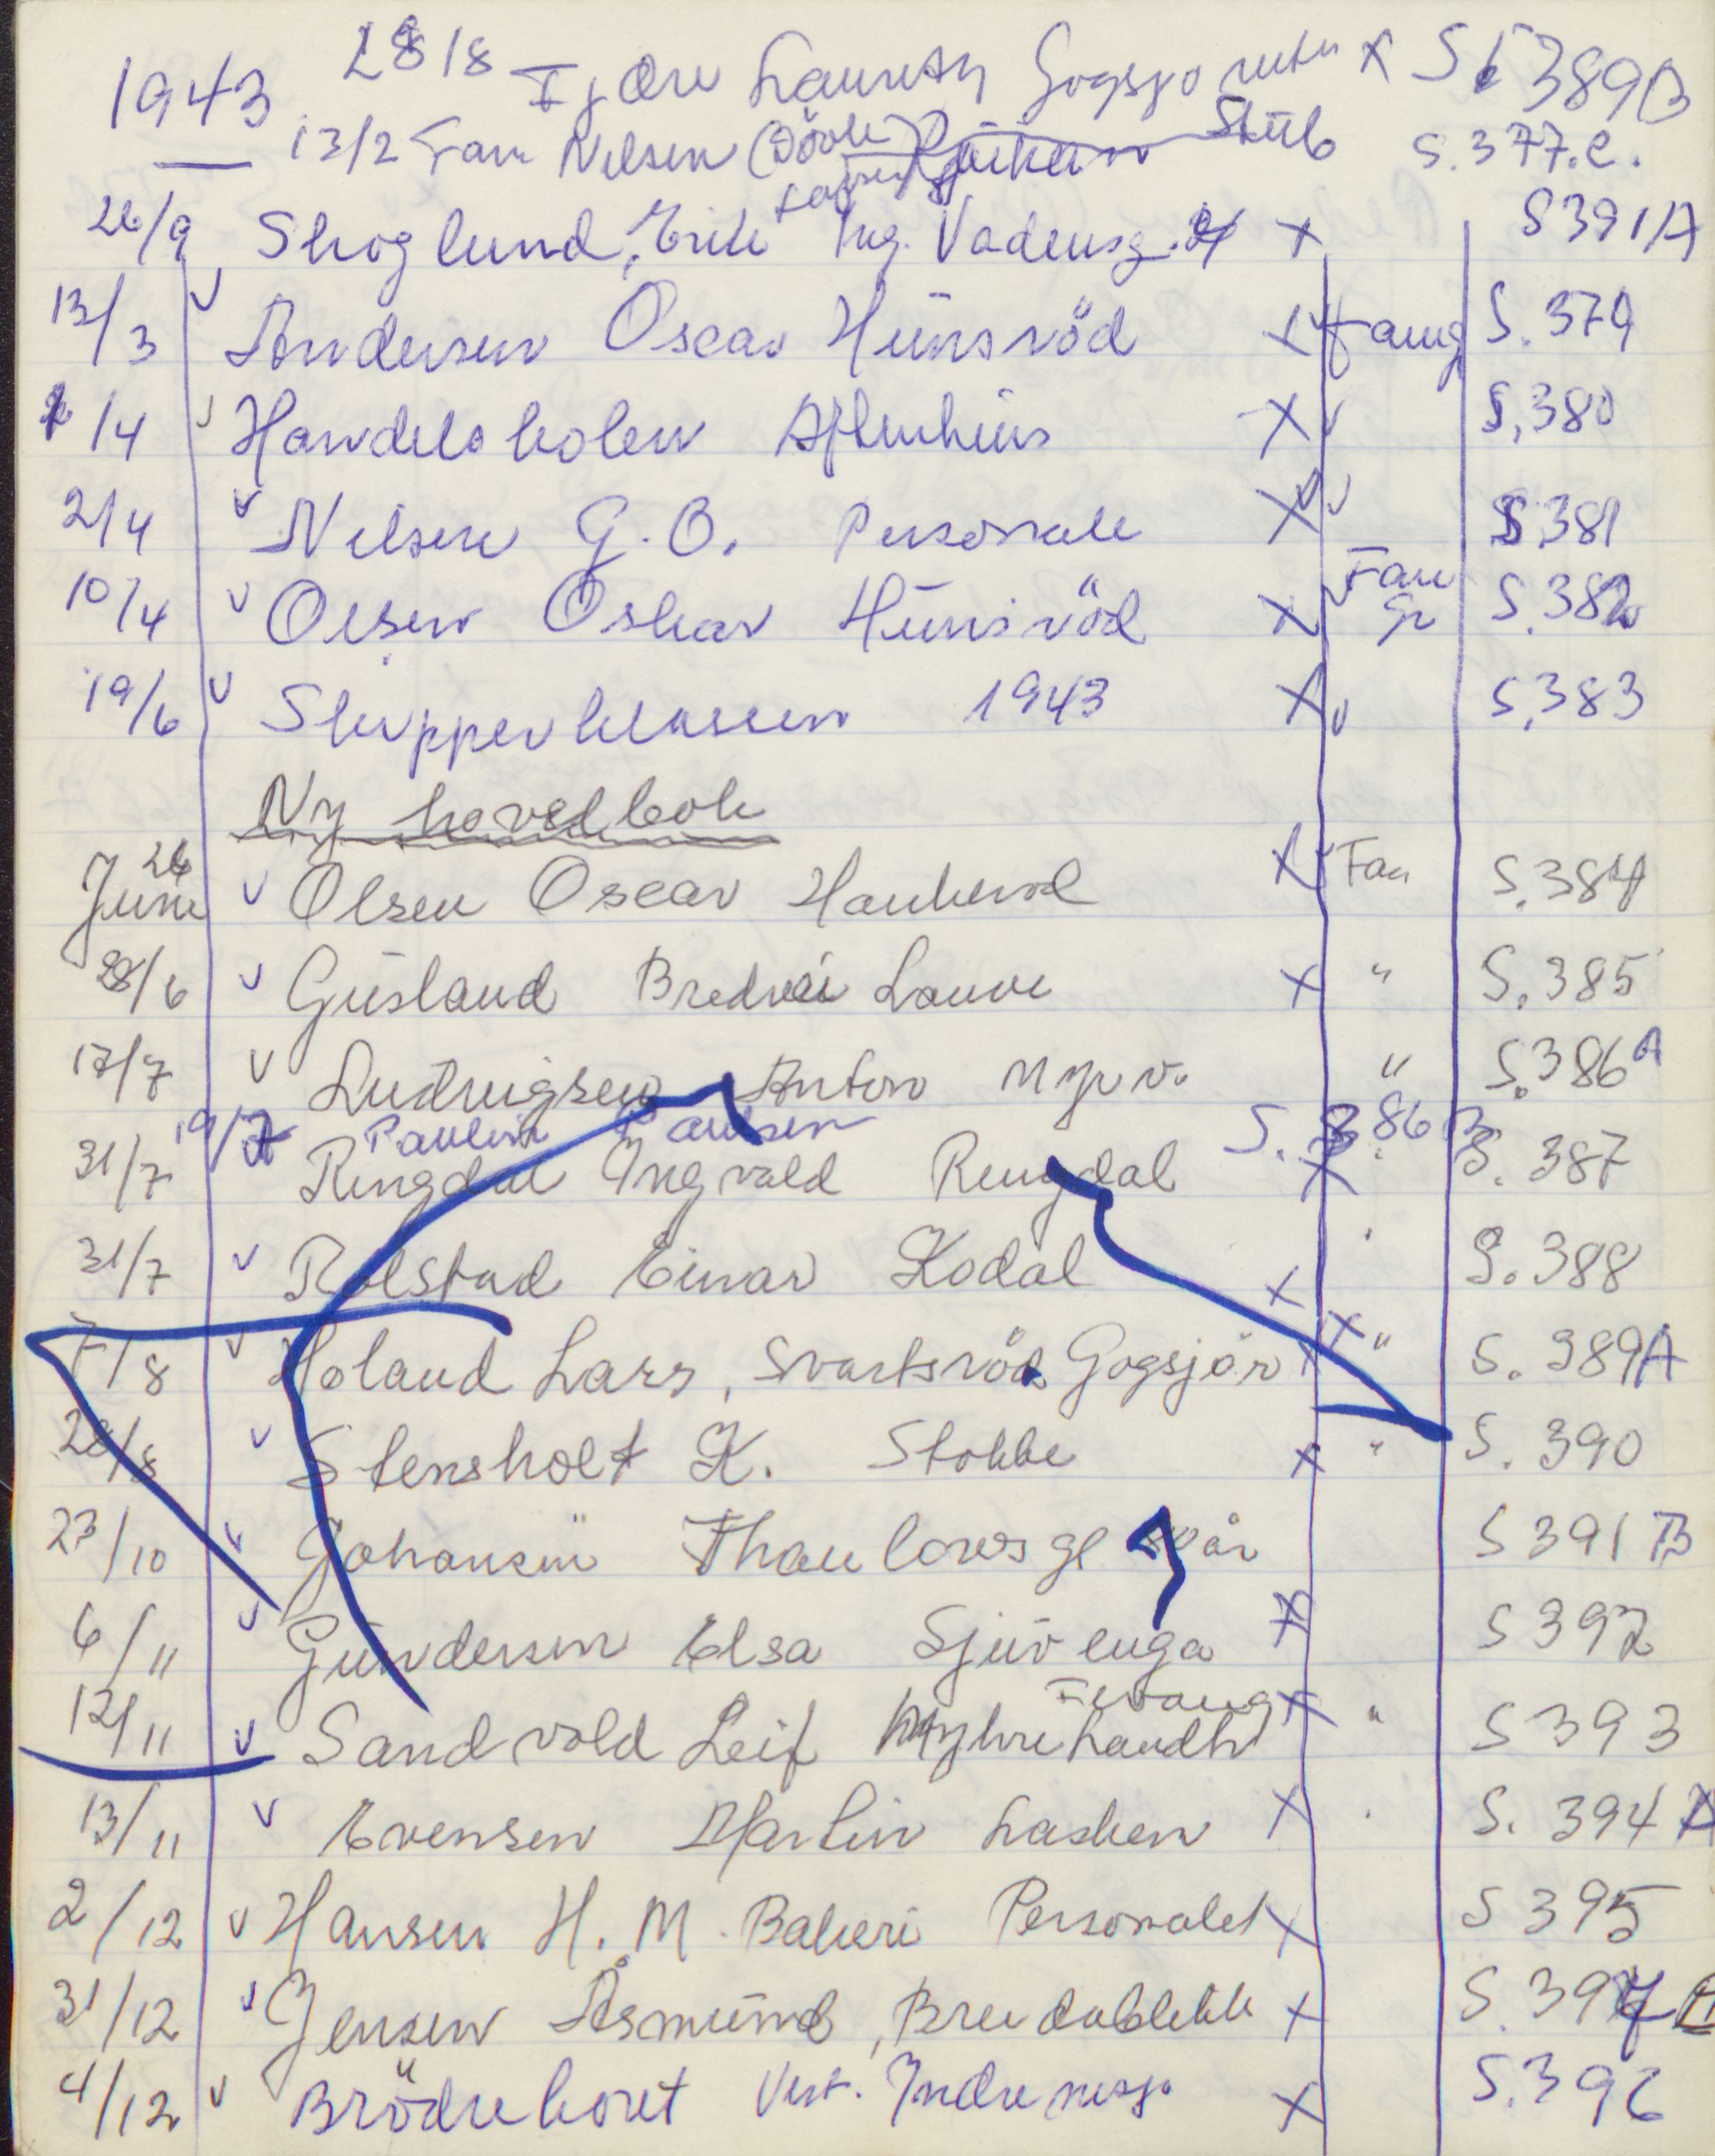 1943 28/8 Fjære Lauritz Gogsjø X S 389B
13/2 Fam Nilsen S.377.C.
26/9 Skoglund, Erik Ing. Vadensg. X S391A
13/3 v Andersen Oscar Hünsröd X v Faug S.379
/4 v Handelsskolen X v S,380
2/4 v Nilsen G.O. Personale X v S 381
10/4 v Olsen Oskar Hünsröd X v Fam Gr S.382
19/6 v Skipperklassen 1943 X v S,383
Ny hovedbok
26 Juni v Olsen Oscar Haukerød X v Fam S.384
28/6 v Güsland Bredvei Lauve X " S.385
17/7 v Ludvigsen Anton " S.386A
19/7 Pauline Paulsen S.386B
31/7 Ringdal Ingvald Ringdal X S.387
31/7 v Rolstad Einar Kodal X " S.388
7/8 v Holand Lars, Svartsröd Gogsjör X " S.389A
28/8 v Stensholt K. Stokke X " S.390
23/10 v Johansen Thaulowsgt S 391B
6/11 v Gündersen Elsa Sjüvenga X S 392
12/11 v Sandvold Leif Myhre handh Fevang X " S 393
13/11 v Evensen Martin Lasken X " S.394 A
2/12 v Hansen H.M. Bakeri Personalet X S 395
31/12 v Jensen Åsmünd, Breidablikk X S.397
4/12 v Brödrekoret Vest. Indremisj. X S.396